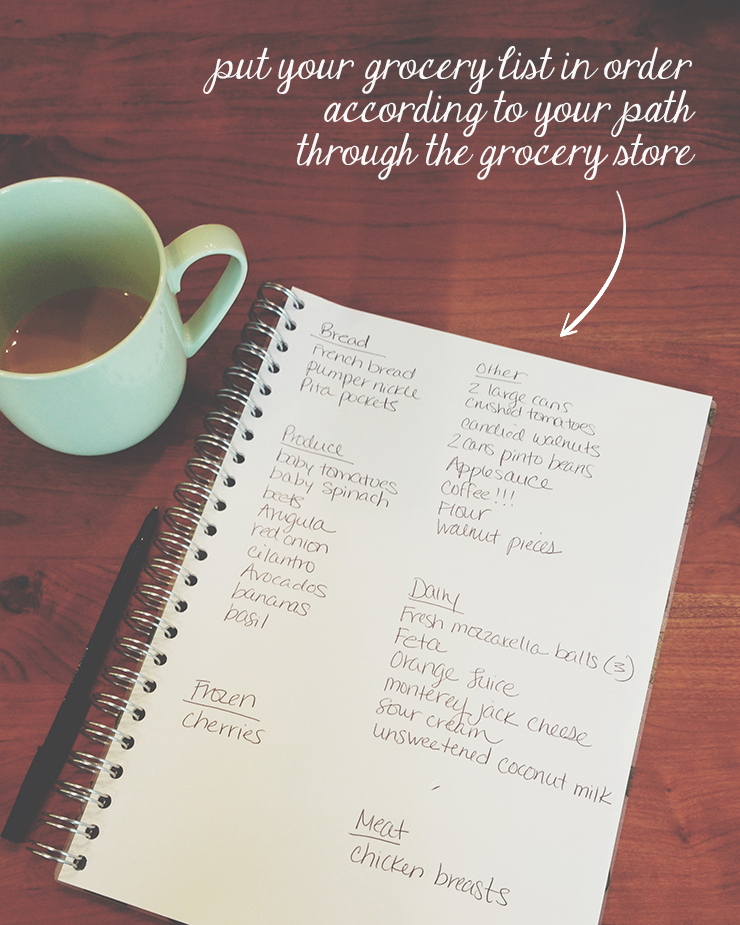 put your grocery list in order
according to your path
through the grocery store
Bread
French bread
pumper nickle
Pita pockets
Produce
baby tomatoes
baby spinach
beets
Arugula
red onion
cilantro
Avocados
bananas
basil
Frozen
cherries
Other
2 large cans
crushed tomatoes
candied walnuts
2 cans pinto beans
Applesauce
coffee!!!
Flour
walnut pieces
Dairy
Fresh mozzarella balls (3)
Feta
Orange Juice
monterey jack cheese
sour cream
unsweetened coconut milk
Meat
chicken breasts